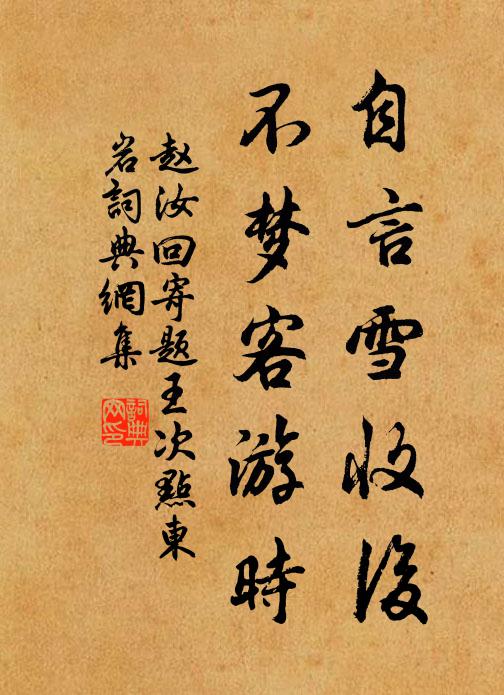 自言雪收後
不梦客游時
赵汝回寄题王次點東
岩詞典網集
詞典
网印